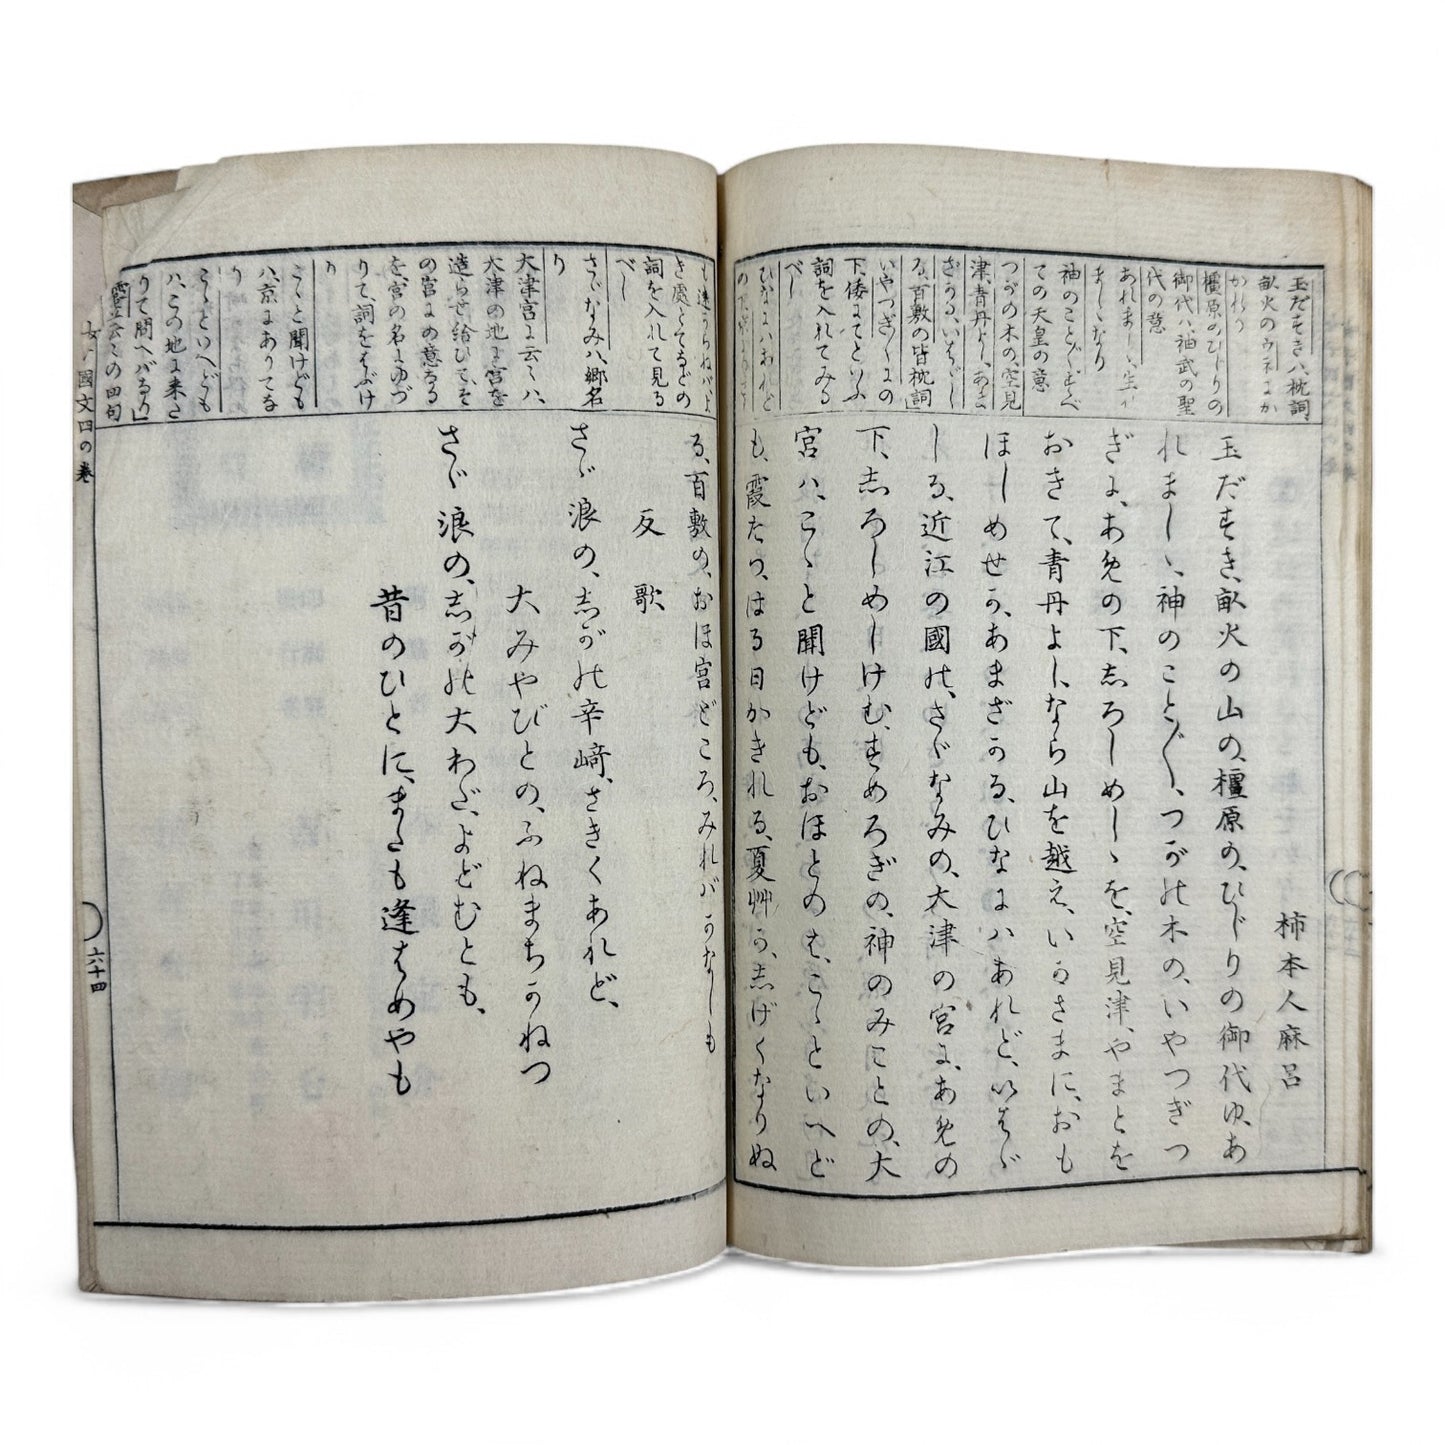 玉だすきハ枕詞
畝火のウネにか
かれり
橿原のひじりの
御代ハ神武の聖
代の意
あれましゝ、生
ましゝなり
神のこと〴〵、すべ
ての天皇の意
つがの木の、空見
津、青丹よし、あま
ざかる、いはゞし
る、百敷の皆枕詞
いやつぎ〳〵の
下、倭にてといふ
詞を入れてみる
べし
ひなにハあれど
柿本人麻呂
玉だすき、畝火の山の、橿原の、ひじりの御代ゆ、あ
れましゝ、神のこと〴〵、つがの木の、いやつぎつ
ぎに、あめの下、しろしめしゝを、空見津、やまとを
おきて、青丹よし、なら山を越え、いかさまに、おも
ほしめせか、あまざかる、ひなにハあれど、いはゞ
しる、近江の國の、さゞなみの、大津の宮に、あめの
下、しろしめしけむ、すめろぎの、神のみことの、大
宮ハ、こゝと聞けども、おほとのは、こゝといへど
も、霞たつ、はる日かきれる、夏艸か、しげくなりぬ
も遠からねバよ
き處とてなどの
詞を入れて見る
べし
さゞなみハ、郷名
り
大津宮に云々ハ、
大津の地に宮を
造らせ給ひて、そ
の宮にの意なる
を、宮の名にゆづ
りて、詞をはぶけ
り
こゝと聞けども
ハ、京にありてな
り
こゝといへども
ハ、この地に来た
りて問へバなり
る、百敷の、おほ宮どころ、みれバかなしも
反歌
さゞ浪の、しがの辛﨑、さきくあれど、
大みやびとの、ふねまちかねつ
さゞ浪の、しがの大わだ、よどむとも、
昔のひとに、またも逢はめやも
女子國文四の巻
六十四